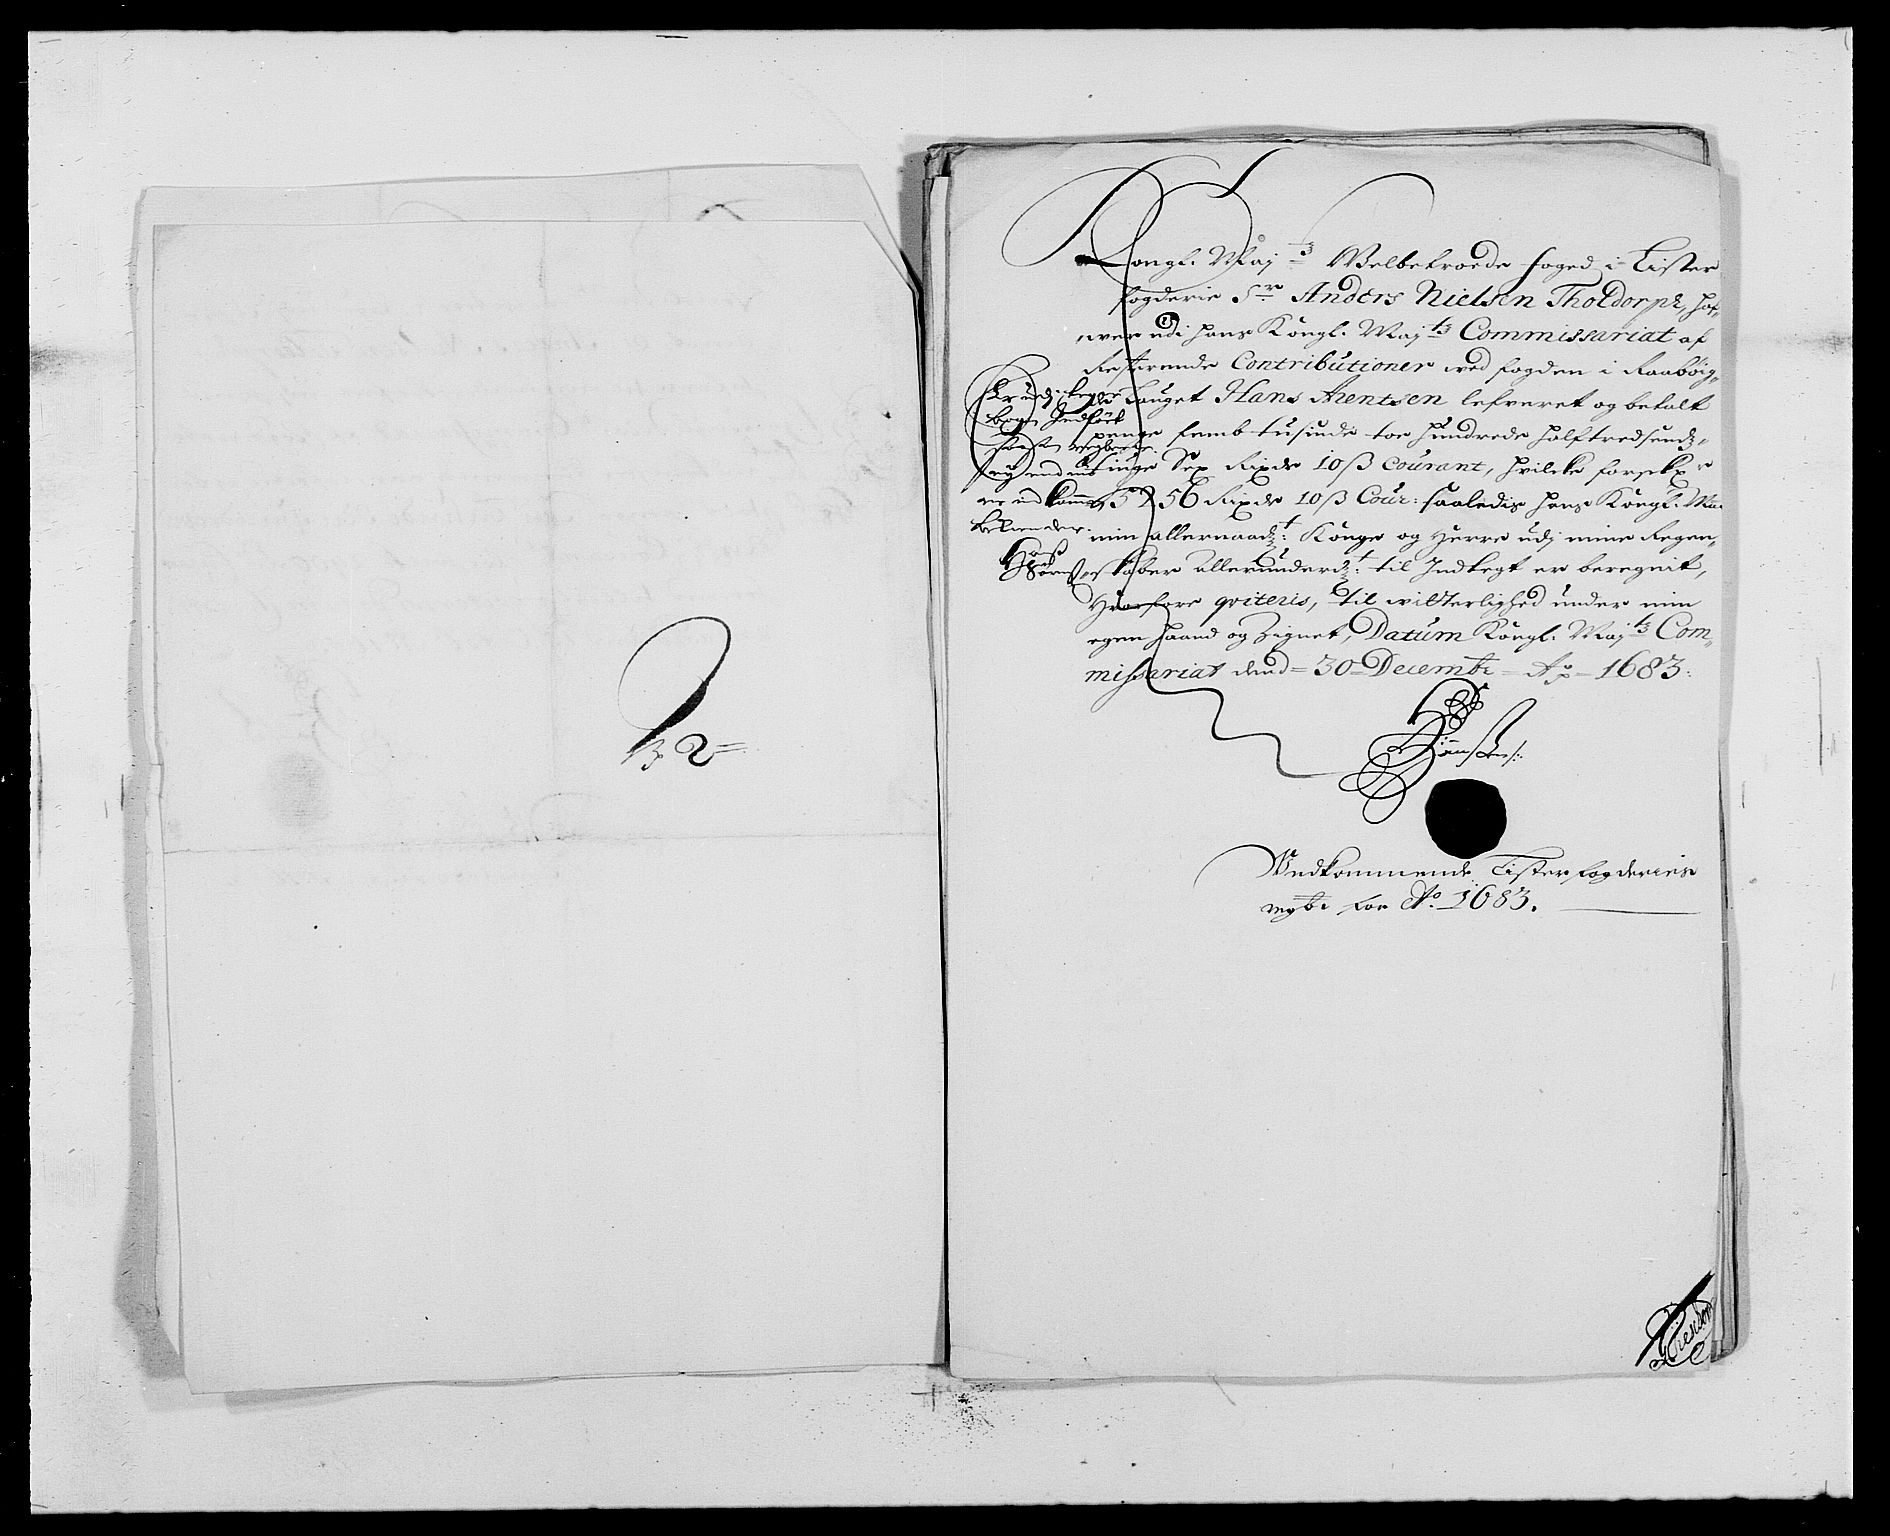 132
Kongl. Maytz Welbetroede foged i Lister
fogderie Sr Anders Nielsen Tholdorph, haf„
wer udi hans Kongl. Maytz Commissariat af
Resterende Contributioner wed fogden i Raabøig„
de lauget Hans Arentsen lefveret og betalt
penge femb tusinde toe hundrede halftredsends„
tiuge Sex Rixdr 10 ß Courant, hvilke forskr
5256 Rixdr 10 ß Cour: saaledis hans Kongl. May
min allernaadt: Konge og Herre udj mine Regen„
skaber allerunderdt: til Indtegt er beregnit,
Hvorfore qviteris, til witterlighed under min
egen haand og Zignet, Datum Kongl. Maytz Com„
missariat dend 30 Decembr Ao 1683.
bog Indført
Vedkommende Lister fogderies
regb: for Ao 1683.